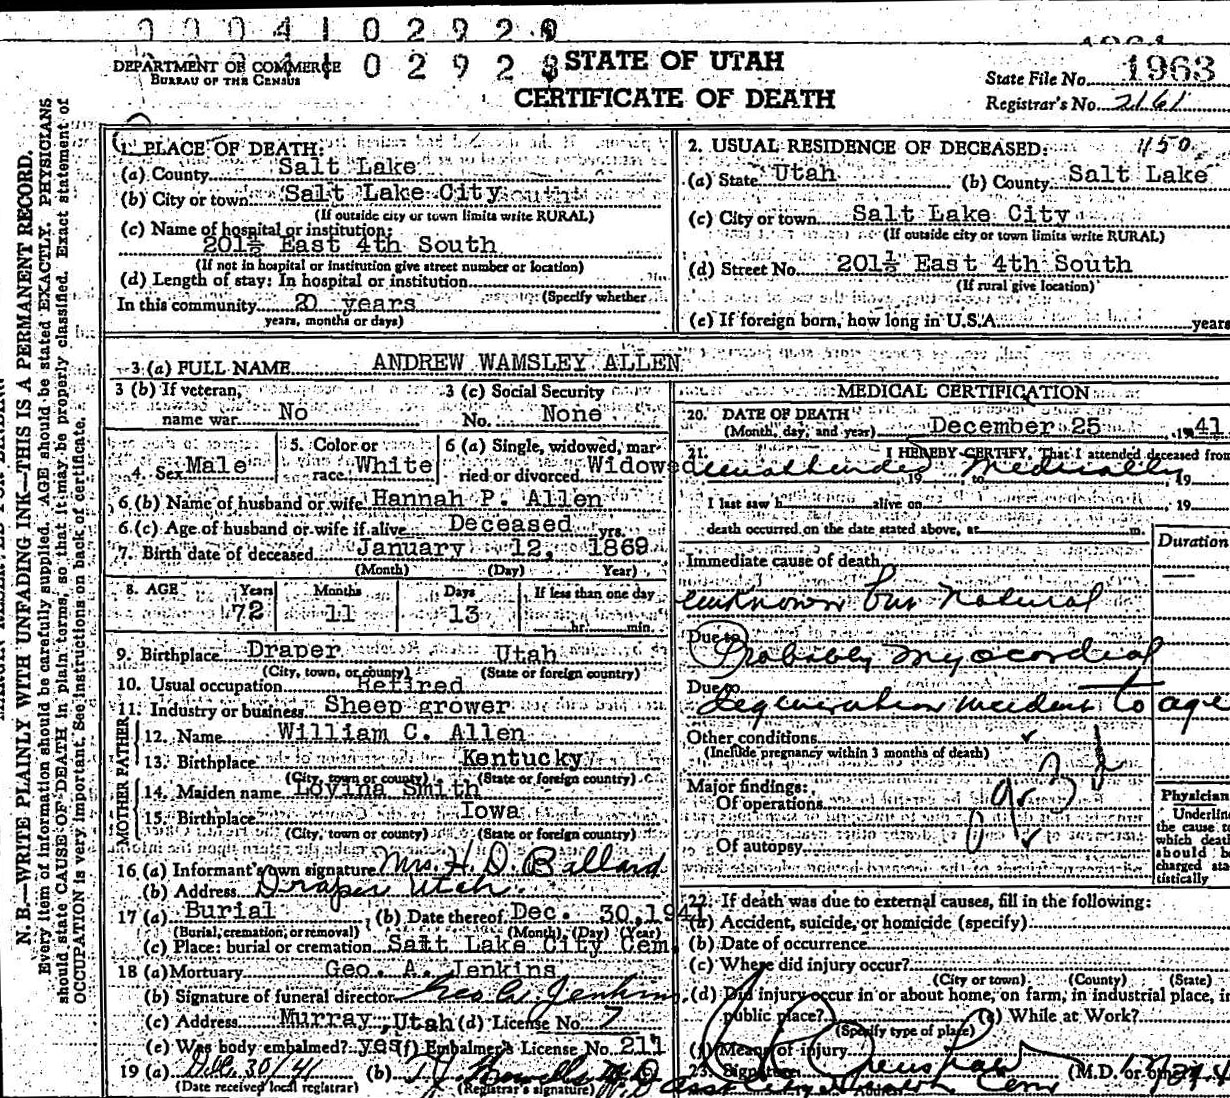 0 0 0 4 1 0 2 9 2 8
DEPARTMENT OF COMMERCE
BUREAU OF THE CENSUS
STATE OF UTAH
CERTIFICATE OF DEATH
State File No. 1963
Registrar's No. 2161
N. B.—WRITE PLAINLY WITH UNFADING INK—THIS IS A PERMANENT RECORD.
Every item of information should be carefully supplied. AGE should be stated EXACTLY. PHYSICIANS
should state CAUSE OF DEATH in plain terms, so that it may be properly classified. Exact statement of
OCCUPATION is very important. See instructions on back of certificate.
1. PLACE OF DEATH:
(a) County Salt Lake
(b) City or town Salt Lake City
(If outside city or town limits write RURAL)
(c) Name of hospital or institution:
201½ East 4th South
(If not in hospital or institution give street number or location)
(d) Length of stay: In hospital or institution
(Specify whether
In this community 20 years
years, months or days)
2. USUAL RESIDENCE OF DECEASED: 1150
(a) State Utah (b) County Salt Lake
(c) City or town Salt Lake City
(If outside city or town limits write RURAL)
(d) Street No. 201½ East 4th South
(If rural give location)
(e) If foreign born, how long in U.S.A. years
3 (a) FULL NAME ANDREW WAMSLEY ALLEN
3 (b) If veteran, name war No
3 (c) Social Security No. None
4. Sex Male
5. Color or race White
6 (a) Single, widowed, married or divorced Widowe
6 (b) Name of husband or wife Hannah P. Allen
6 (c) Age of husband or wife if alive Deceased yrs.
7. Birth date of deceased January 12, 1869
(Month) (Day) Year)
8. AGE Years 72 Months 11 Days 13 If less than one day
hr. min.
9. Birthplace Draper Utah
(City, town, or county) (State or foreign country)
10. Usual occupation Retired
11. Industry or business Sheep grower
FATHER
12. Name William C. Allen
13. Birthplace Kentucky
(City, town or county) (State or foreign country)
MOTHER
14. Maiden name Lovina Smith
15. Birthplace Iowa
(City, town or county) (State or foreign country)
16 (a) Informant's own signature Mrs. H. D. Ballard
(b) Address Draper Utah.
17 (a) Burial (b) Date thereof Dec. 30, 1941
(Burial, cremation, or removal) (Month) (Day) (Year)
(c) Place: burial or cremation Salt Lake City Cem.
18 (a) Mortuary Geo. A. Jenkins
(b) Signature of funeral director Geo A. Jenkins
(c) Address Murray, Utah (d) License No. 7
(e) Was body embalmed? yes (f) Embalmer's License No. 211
19 (a) Dec 30/41 (b)
(Date received local registrar) (Registrar's signature)
MEDICAL CERTIFICATION
20. DATE OF DEATH
(Month, day, and year) December 25, 1941
21. I HEREBY CERTIFY, That I attended deceased from
unattended medically, 19 to , 19
I last saw h alive on , 19
death occurred on the date stated above, at m.
Duration
Immediate cause of death
unknown but natural
Due to
Probably myocordial
Due to
degeneration incident to age
Other conditions
(Include pregnancy within 3 months of death)
Major findings:
Of operations
Of autopsy
Physician
Underline
the cause
which death
should be
charged sta-
tistically
22. If death was due to external causes, fill in the following:
(a) Accident, suicide, or homicide (specify)
(b) Date of occurrence
(c) Where did injury occur?
(City or town) (County) (State)
(d) Did injury occur in or about home, on farm, in industrial place, in
public place? (e) While at Work?
(Specify type of place)
(f) Means of injury
23. Signature (M.D. or other)
Address